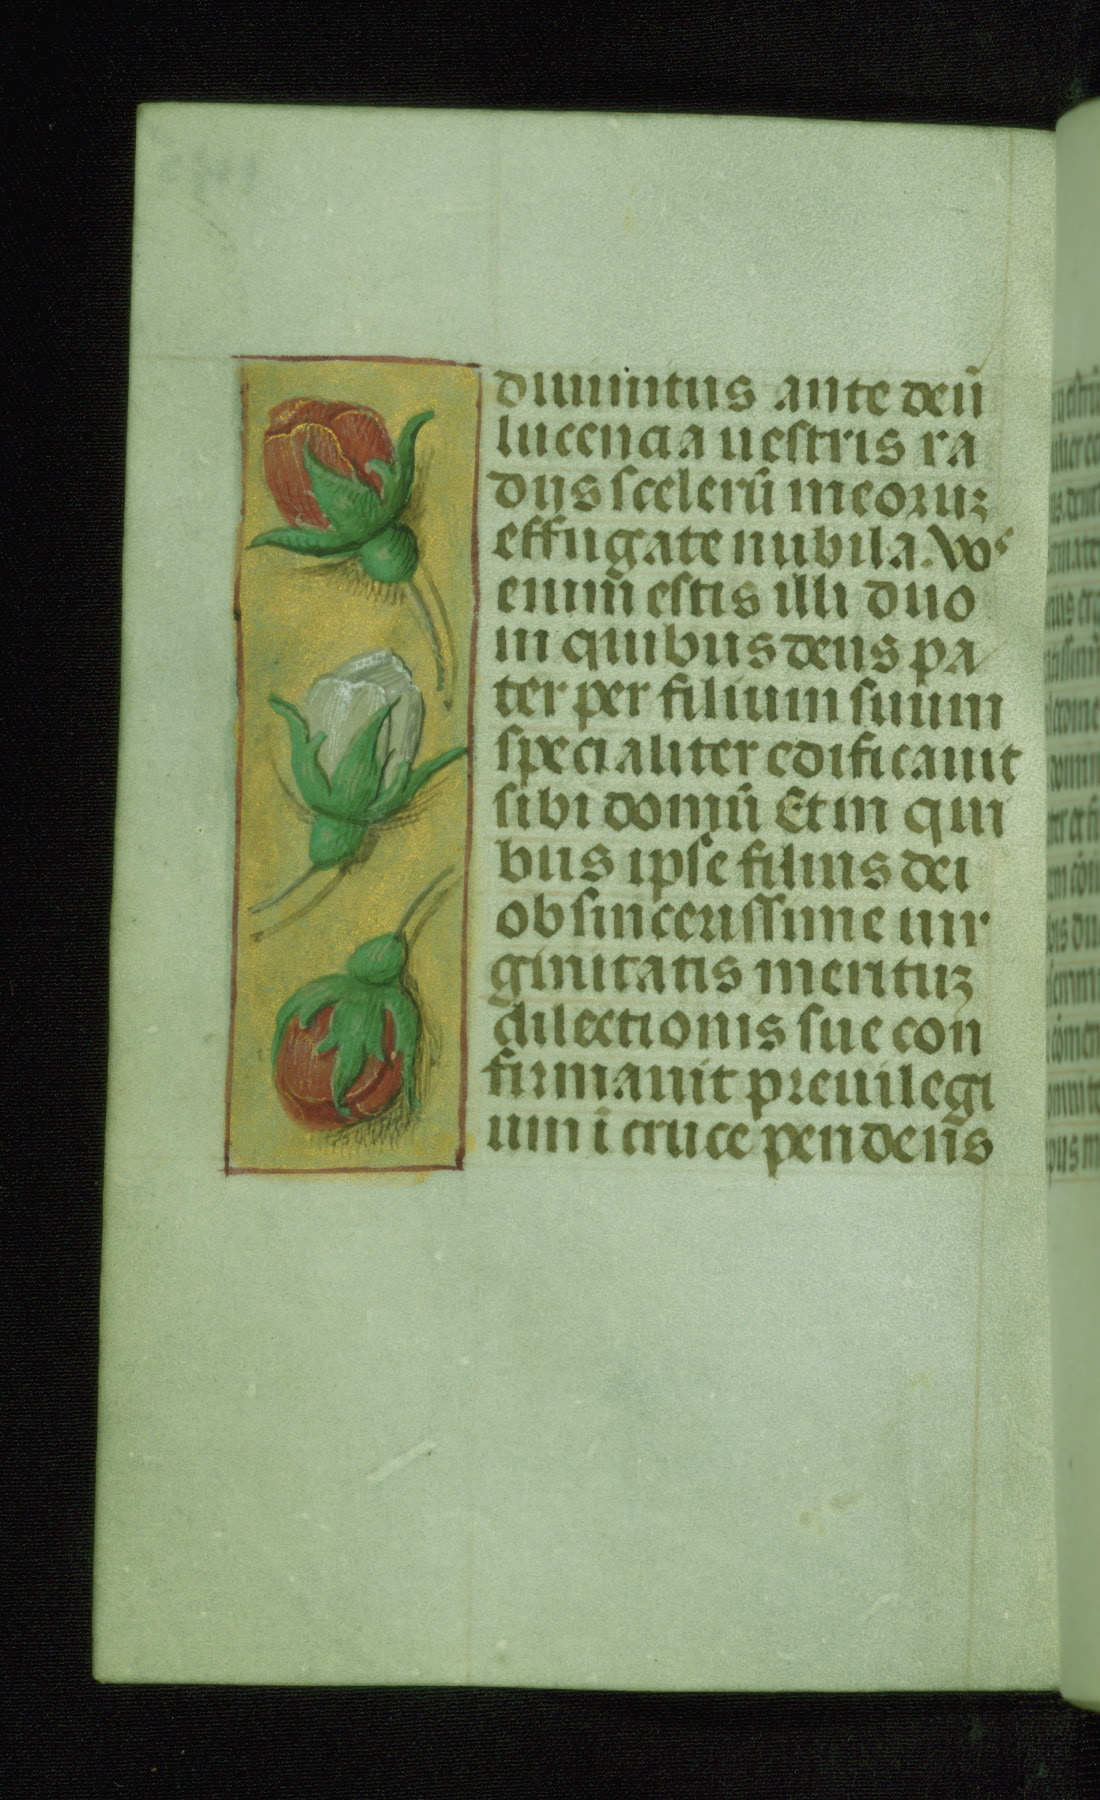 diuinitus ante deū
lucencia uestris ra
dijs scelerū meoruz
effugate nubila. Vos
enim̄ estis illi duo
in quibus deus pa
ter per filium suum
specialiter edificauit
sibi domū Et in qui
bus ipse filius dei
ob sincerissime uir
ginitatis merituz
dilectionis sue con
firmauit preuilegi
um ī cruce pendens